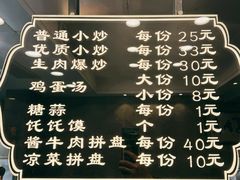 普通小炒 每份25元
优质小炒 每份33元
生肉爆炒 每份30元
鸡蛋汤 大份10元
小份8元
糖蒜 每份1元
饦饦馍 个1元
酱牛肉拼盘 每份40元
凉菜拼盘 每份10元